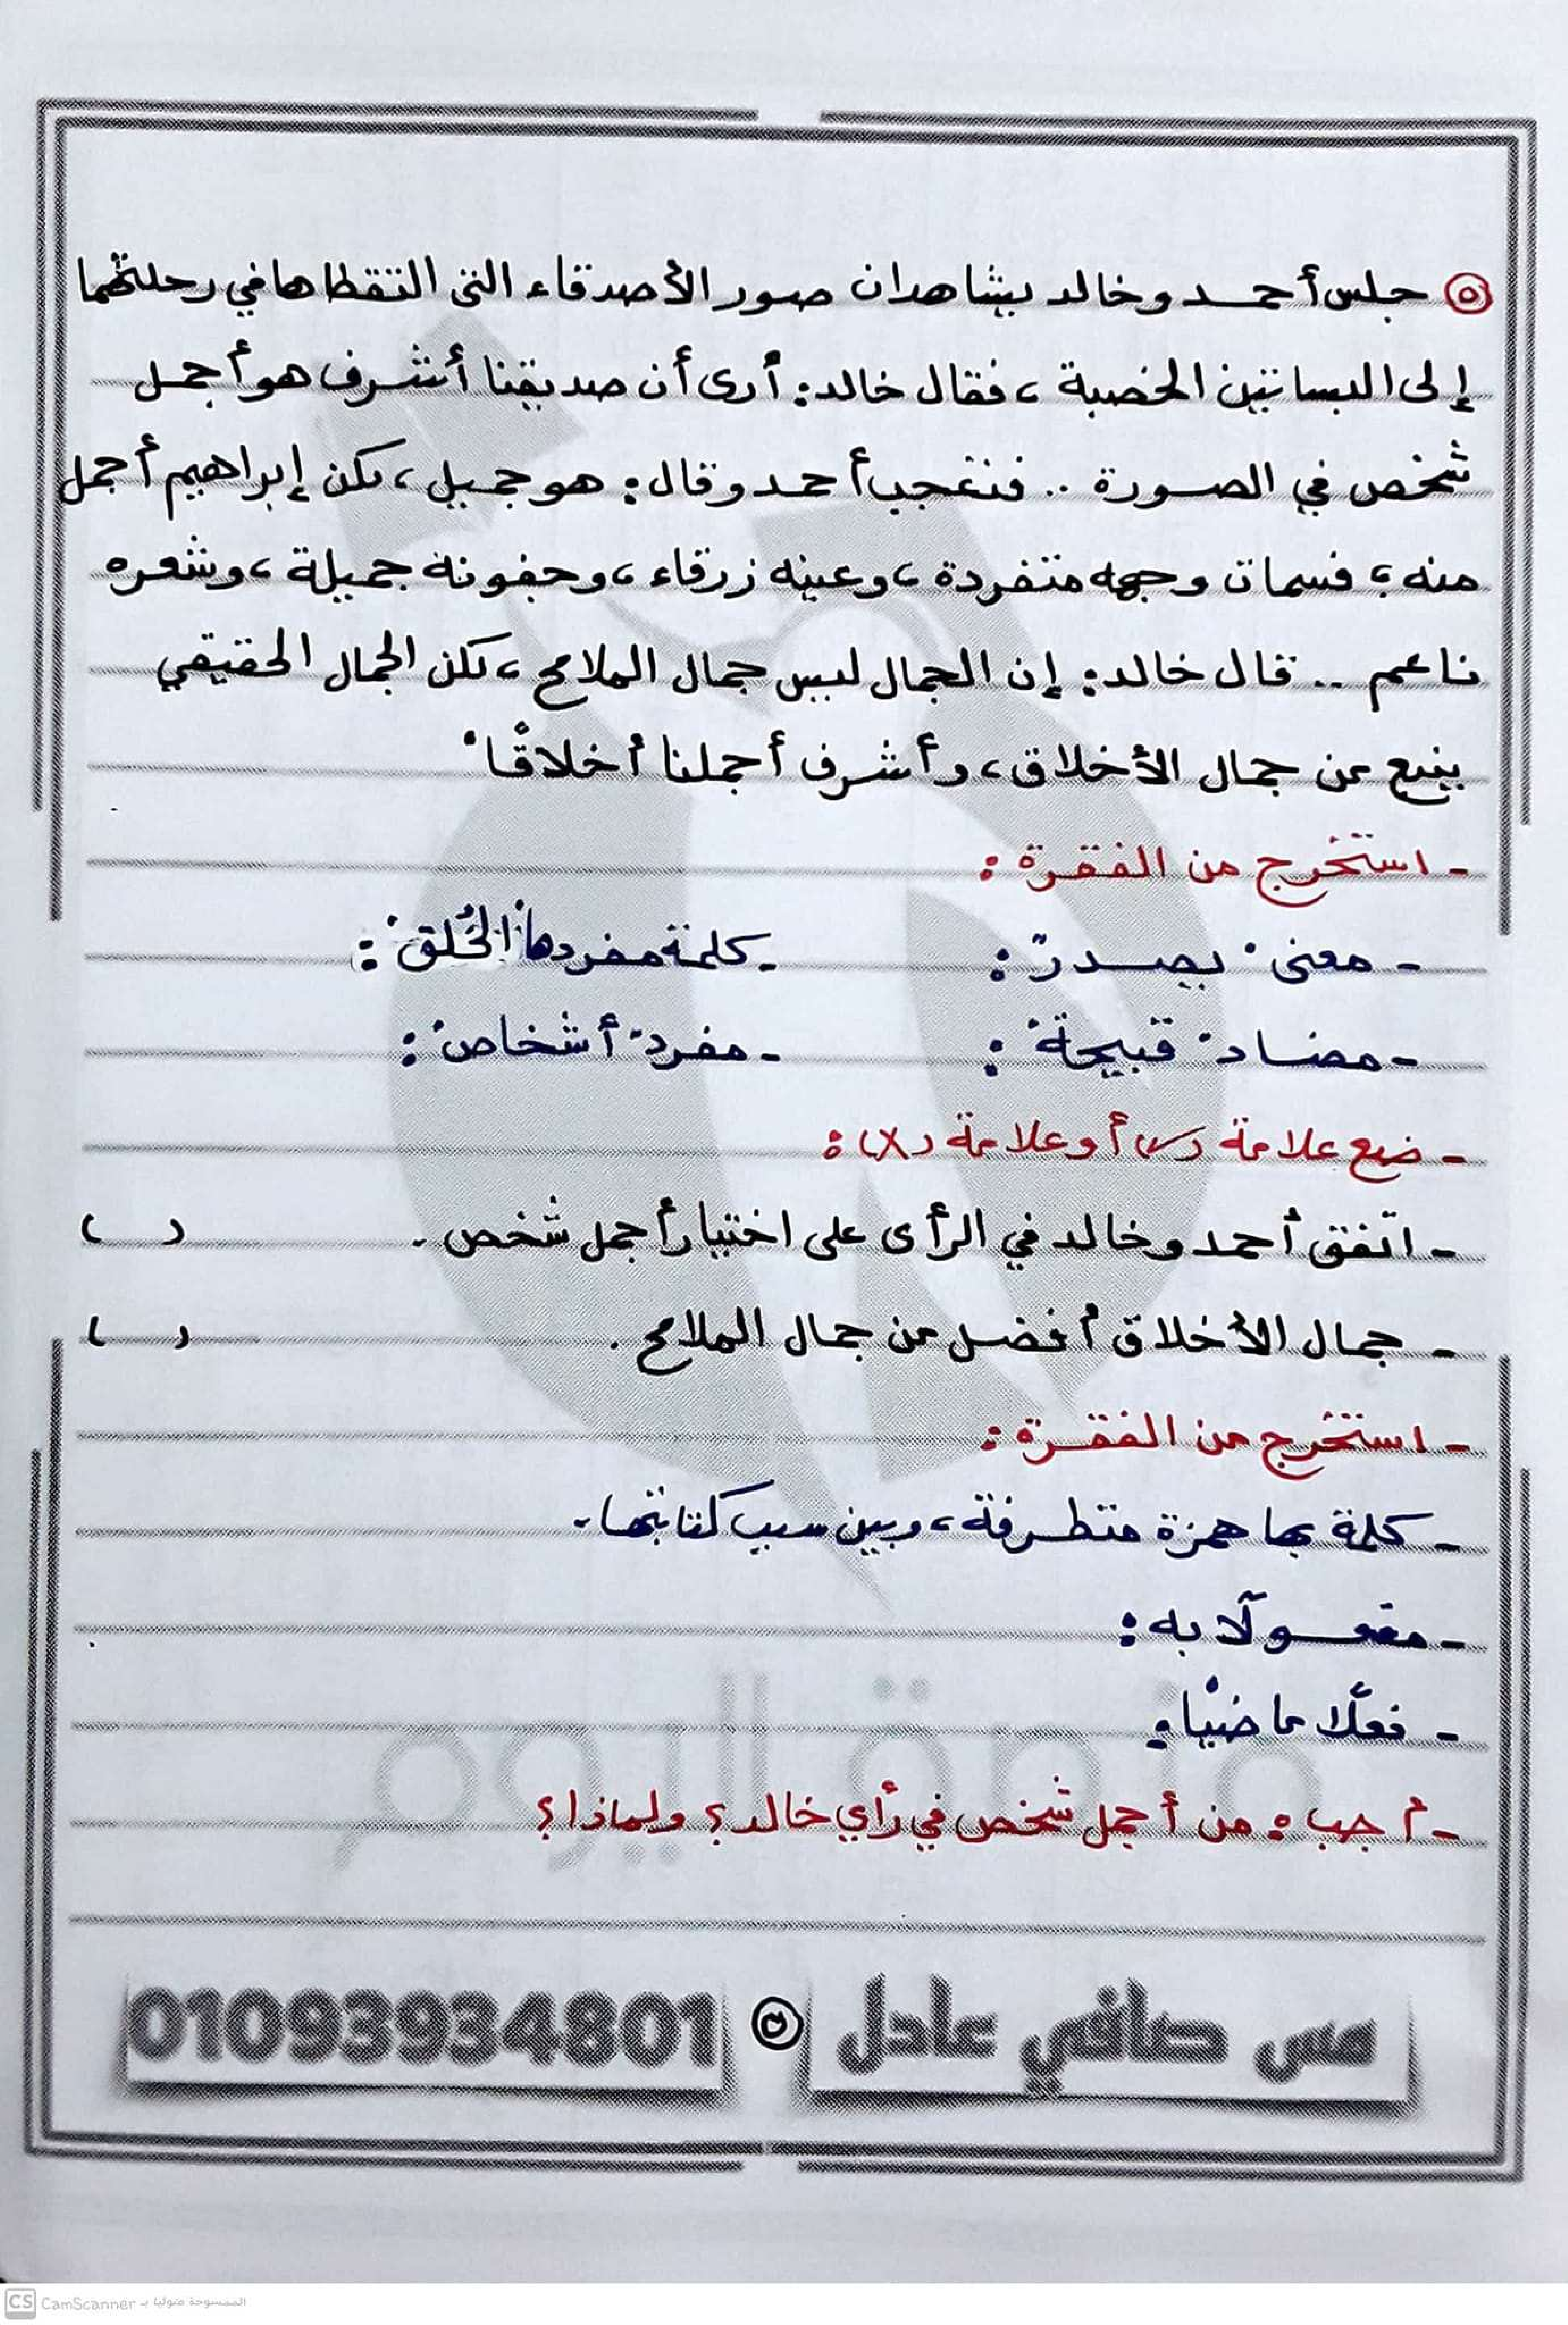 ٥ جلس أحمد وخالد يشاهدان صور الأصدقاء التى التقطاها في رحلتهما
إلى البساتين الخصبة ، فقال خالد: أرى أن صديقنا أشرف هو أجمل
شخص في الصورة .. فتعجب أحمد وقال: هو جميل ، لكن إبراهيم أجمل
منه ؛ فسمات وجهه متفردة ، وعينه زرقاء ، وجفونه جميلة ، وشعره
ناعم .. قال خالد: إن الجمال ليس جمال الملامح ، لكن الجمال الحقيقي
ينبع من جمال الأخلاق ، وأشرف أجملنا أخلاقًا"
- استخرج من الفقرة :
- معنى " يصدر" : - كلمة مفردها "الخُلق" :
- مضاد " قبيحة" : - مفرد "أشخاص" :
- ضع علامة (✓) أو علامة (X) :
- اتفق أحمد وخالد في الرأى على اختيار أجمل شخص . ( )
- جمال الأخلاق أفضل من جمال الملامح . ( )
- استخرج من الفقرة :
- كلمة بها همزة متطرفة ، وبين سبب كتابتها .
- مفعولًا به :
- فعلًا ماضيًا :
- أجب : من أجمل شخص في رأي خالد ؟ ولماذا ؟
مس صافي عادل 01093934801
متعة اليوم
CS CamScanner الممسوحة ضوئيا بـ